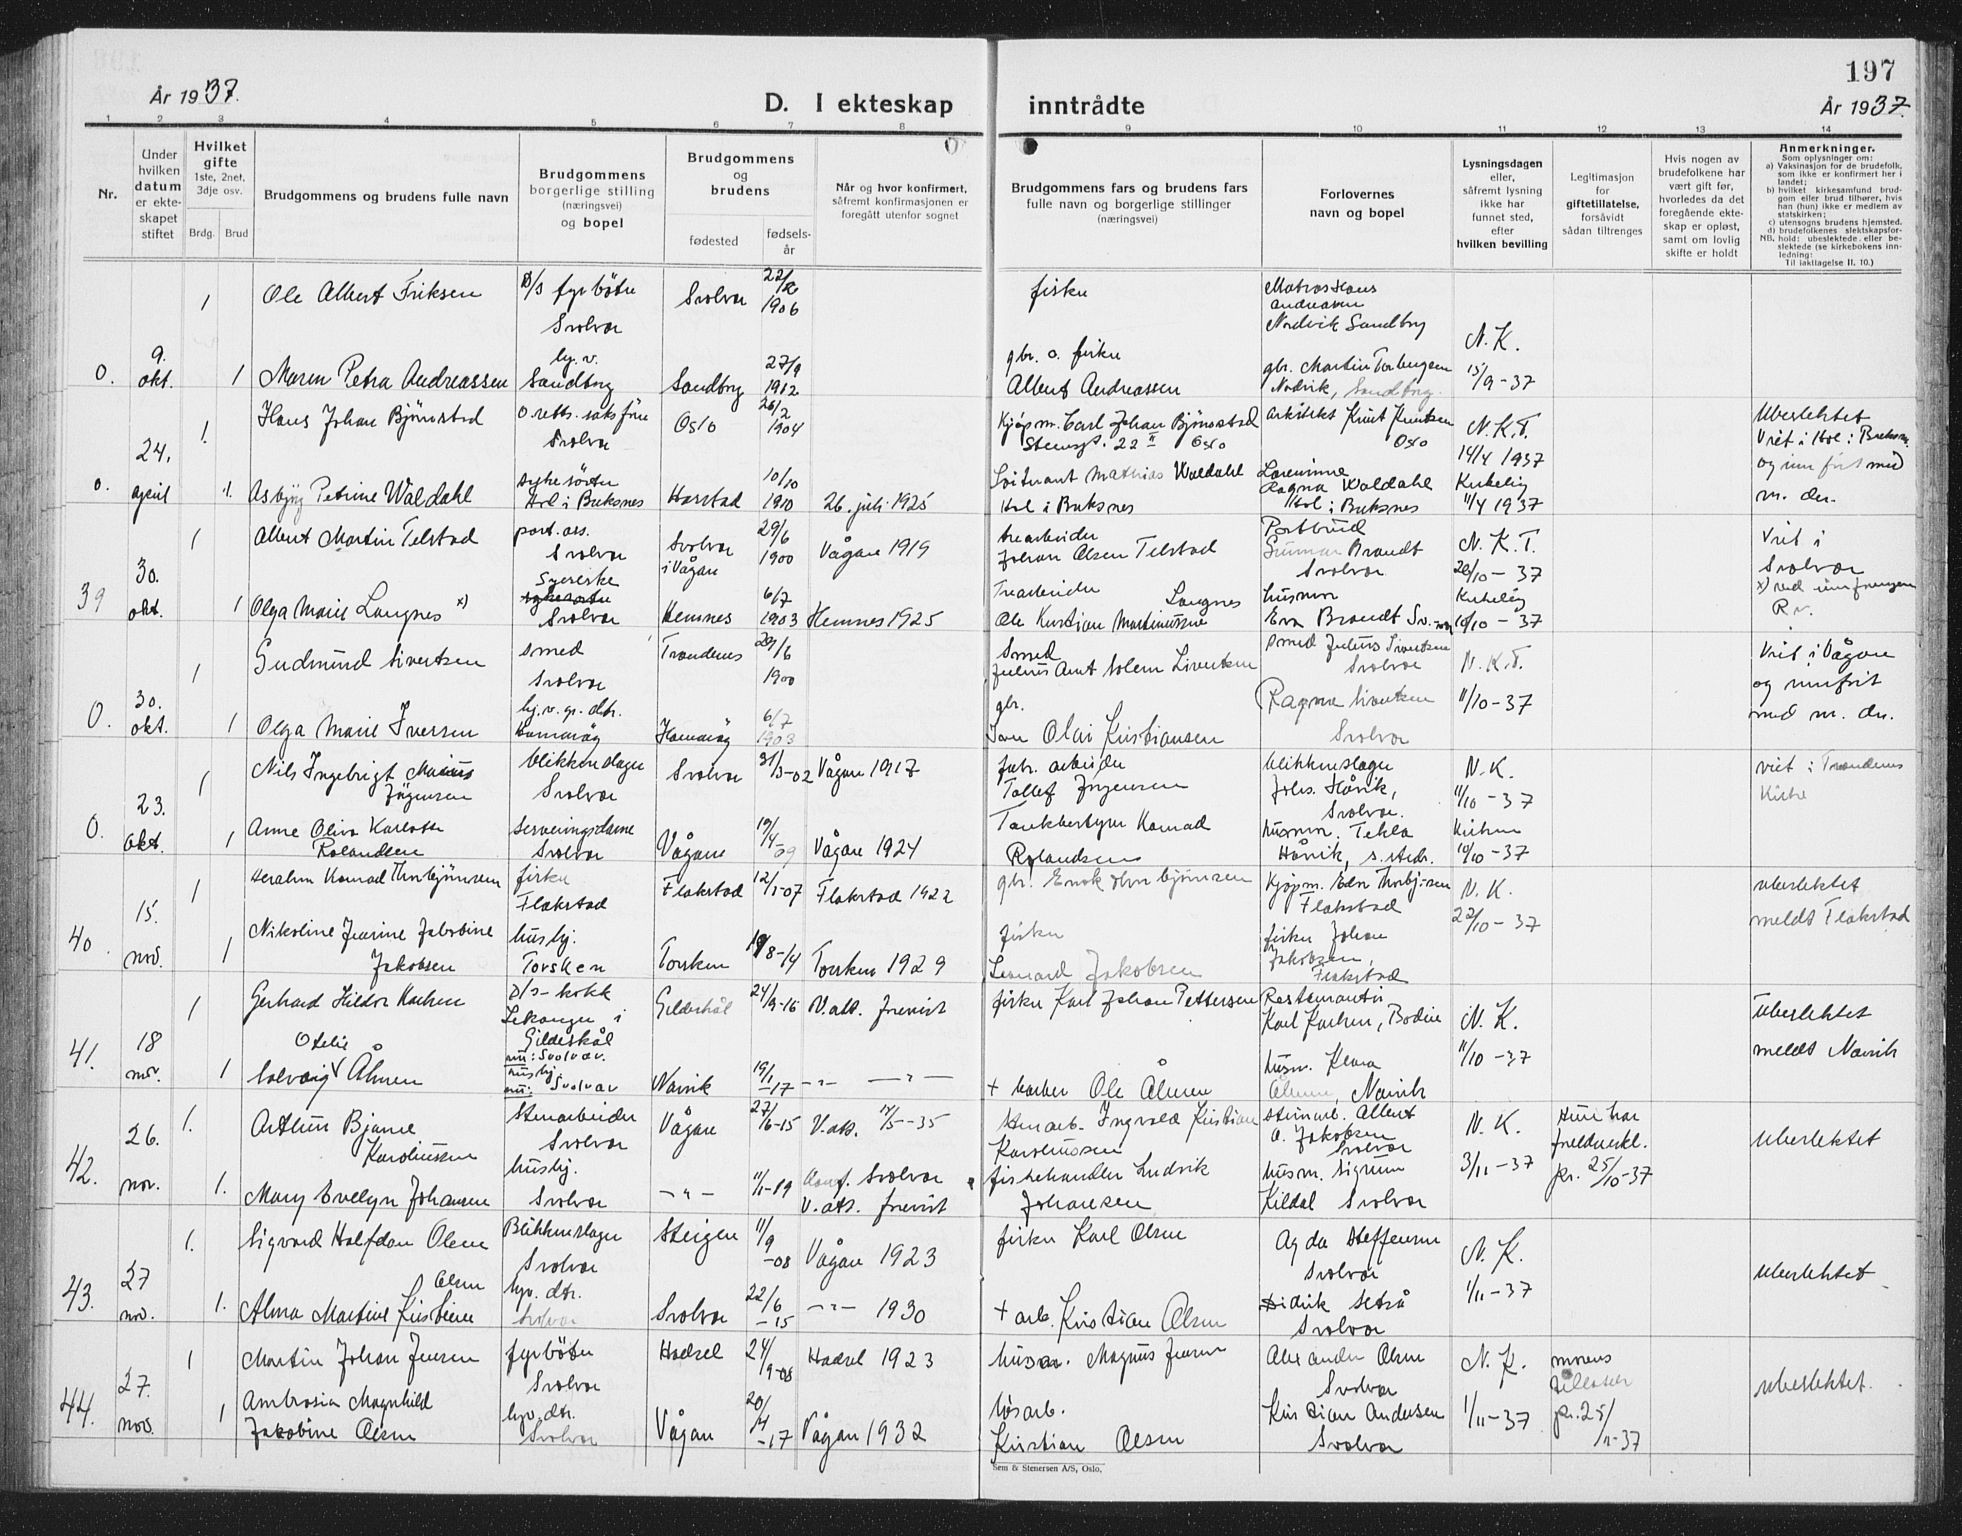 197
År 1937.
D. I ekteskap inntrådte
År 1937.
1 2 3 4 5 6 7 8 9 10 11 12 13 14
Nr.
Under hvilken datum er ekteskapet stiftet
Hvilket gifte
1ste, 2net, 3dje osv.
Brdg. Brud
Brudgommens og brudens fulle navn
Brudgommens borgerlige stilling (næringsvei) og bopel
Brudgommens og brudens
fødested
fødselsår
Når og hvor konfirmert, såfremt konfirmasjonen er foregått utenfor sognet
Brudgommens fars og brudens fars fulle navn og borgerlige stillinger (næringsvei)
Forlovernes navn og bopel
Lysningsdagen eller, såfremt lysning ikke har funnet sted, efter hvilken bevilling
Legitimasjon for giftetillatelse, forsåvidt sådan tiltrenges
Hvis nogen av brudefolkene har vært gift før, hvorledes da det foregående ekteskap er opløst, samt om lovlig skifte er holdt
Anmerkninger.
Som oplysninger om:
a) Vaksinasjon for de brudefolk, som ikke er konfirmert her i landet;
b) hvilket kirkesamfund brudgom eller brud tilhører, hvis han (hun) ikke er medlem av statskirken;
c) utensogns brudens hjemsted.
d) brudefolkenes slektskapsforhold: ubeslektede eller beslektede (se kirkebokens innledning:
NB.
Til iakttagelse II. 10.)
1 Ole Albert Eriksen D/S fyrbøter Svolvær Svolvær 22/2 1906 fisker Matros Hans Andreassen Nordvik Sandberg N. K.
0. 9. okt. 1 Maren Petra Andreassen hj. v. Sandberg Sandberg 27/9 1912 gbr. o. fisker Albert Andreassen gbr. Martin Nordvik, Sandberg 15/9-37
1. Hans Johan Bjørnstad o.retts.saksfører Svolvær Oslo 26/2 1904 Kjøpm. Carl Johan Bjørnstad Stensgt. 22 II Oslo arkitekt Knut Knutsen Oslo N.K.T. 14/4 1937 Ubeslektet
Viet i Hol i Buksn. og innført med m. der.
0. 24. april 1. Asbjørg Petrine Waldahl sykesøster Hol i Buksnes Harstad 10/10 1910 26. juli 1925 Løitnant Mathias Waldahl Hol i Buksnes Lærerinne Ragna Waldahl Hol i Buksnes Kirkelig 11/4 1937
1 Albert Martin Telstad port. ass. Svolvær Svolvær i Vågan 29/6 1900 Vågan 1919 trearbeider Johan Olsen Telstad Postbud Gunnar Brandt Svolvær N. K. T. 20/10-37 Viet i Svolvær
39 30. okt. 1 Olga Marie Langnes x) Syerske Svolvær Hemnes 6/7 1903 Hemnes 1925 Trearbeider Ole Kristian Martinussen Langnes husmor Eva Brandt Kirkelig 10/10-37 x) ved
1 Gudmund Sivertsen smed Svolvær Trondenes 29/6 1900 Smed Julius Arnt Solem Sivertsen smed Julius Sivertsen Svolvær N.K.T. Viet i Vågan og innført med m. der.
0. 30. okt. 1 Olga Marie Iversen hj.v. gr. dtr. Hamarøy Hamarøy 6/7 1903 gbr. Olai Kristiansen Ragna Sivertsen Svolvær 11/10-37
1 Nils Ingebrigt Marius Jørgensen blikkenslager Svolvær Svolvær 31/3-02 Vågan 1917 fabr. arbeider Tollef Jørgensen blikkenslager Johs. Håvik, Svolvær. N.K. 11/10-37 viet i Trondenes Kirke
0. 23. okt. 1 Anne Oliva Karlotte Rolandsen serveringsdame Svolvær Vågan 19/4-09 Vågan 1924 Tankbestyrer Konrad Rolandsen husmor. Tekla Håvik, s. steds. Kirken 10/10-37
1 Konrad Thorbjørnsen fisker Flakstad Flakstad 12/1-07 Flakstad 1922 gbr. Enok Thorbjørnsen Kjøpm. Edv. Thorbjørnsen Flakstad N. K. 22/10-37 ubeslektet
meldt Flakstad
40 15. nov. 1 Nikoline Jensine Jakobine Jakobsen hushj. Torsken Torsken 19/8-14 Torsken 1929 fisker Leonard Jakobsen fisker Johan Jakobsen, Flakstad
1 Gerhard Hildor Karlsen D/S-kokk i Gildeskål nu: Svolvær. Gildeskål 24/9-16 V.att. fremvist fisker Karl Johan Pettersen Restauratør Karl Karlsen, Bodin N. K. 11/10-37 Ubeslektet
meldt Narvik
41. 18 nov. 1 Solveig Otelie Ålmen hushj. nu: Svolvær Narvik 19/1-17 -"- -"- + barber Ole Ålmen husm. Klara Ålmen, Narvik
1. Arthur Bjarne Karoliussen Stenarbeider Svolvær Vågan 27/6-15 V.att. 17/5-35 Stenarb. Ingvald Kristian Karoliussen stenarb. Albert A. Jakobsen Svolvær N. K. 3/11-37 Hun har foreldreerkl. pr. 25/10-37 Ubeslektet
42. 26. nov. 1. Mary Evelyn Johansen hushj. Svolvær -"- 11/11-19 Konf. Svolvær V.att. fremvist fiskehandler Ludvik Johansen husm. Sigrunn Kildal Svolvær
1. Sigvard Halfdan Olsen Blikkenslager Svolvær Steigen 11/9-08 Vågan 1923 fisker Karl Olsen Agda Steffensen Svolvær N. K. 1/11-37 Ubeslektet
43. 27 nov. 1. Alma Martine Kirstine Olsen hjv. dtr. Svolvær Svolvær 22/6-15 -"- 1930 + arb. Kristian Olsen Didrik Setså Svolvær
1 Martin Johan Jensen fyrbøter Svolvær Hadsel 24/9-08 Hadsel 1923 Magnus Jensen Alexander Olsen Svolvær N. K. 1/11-37 morens tillatelse pr. 25/11-37 ubeslektet.
44. 27. nov. 1 Ambrosia Magnhild Jakobine Olsen hjv. dtr. Svolvær Vågan 20/4-17 Vågan 1932 løsarb. Kristian Olsen Kristian Andersen Svolvær
Sem & Stenersen A/S, Oslo.